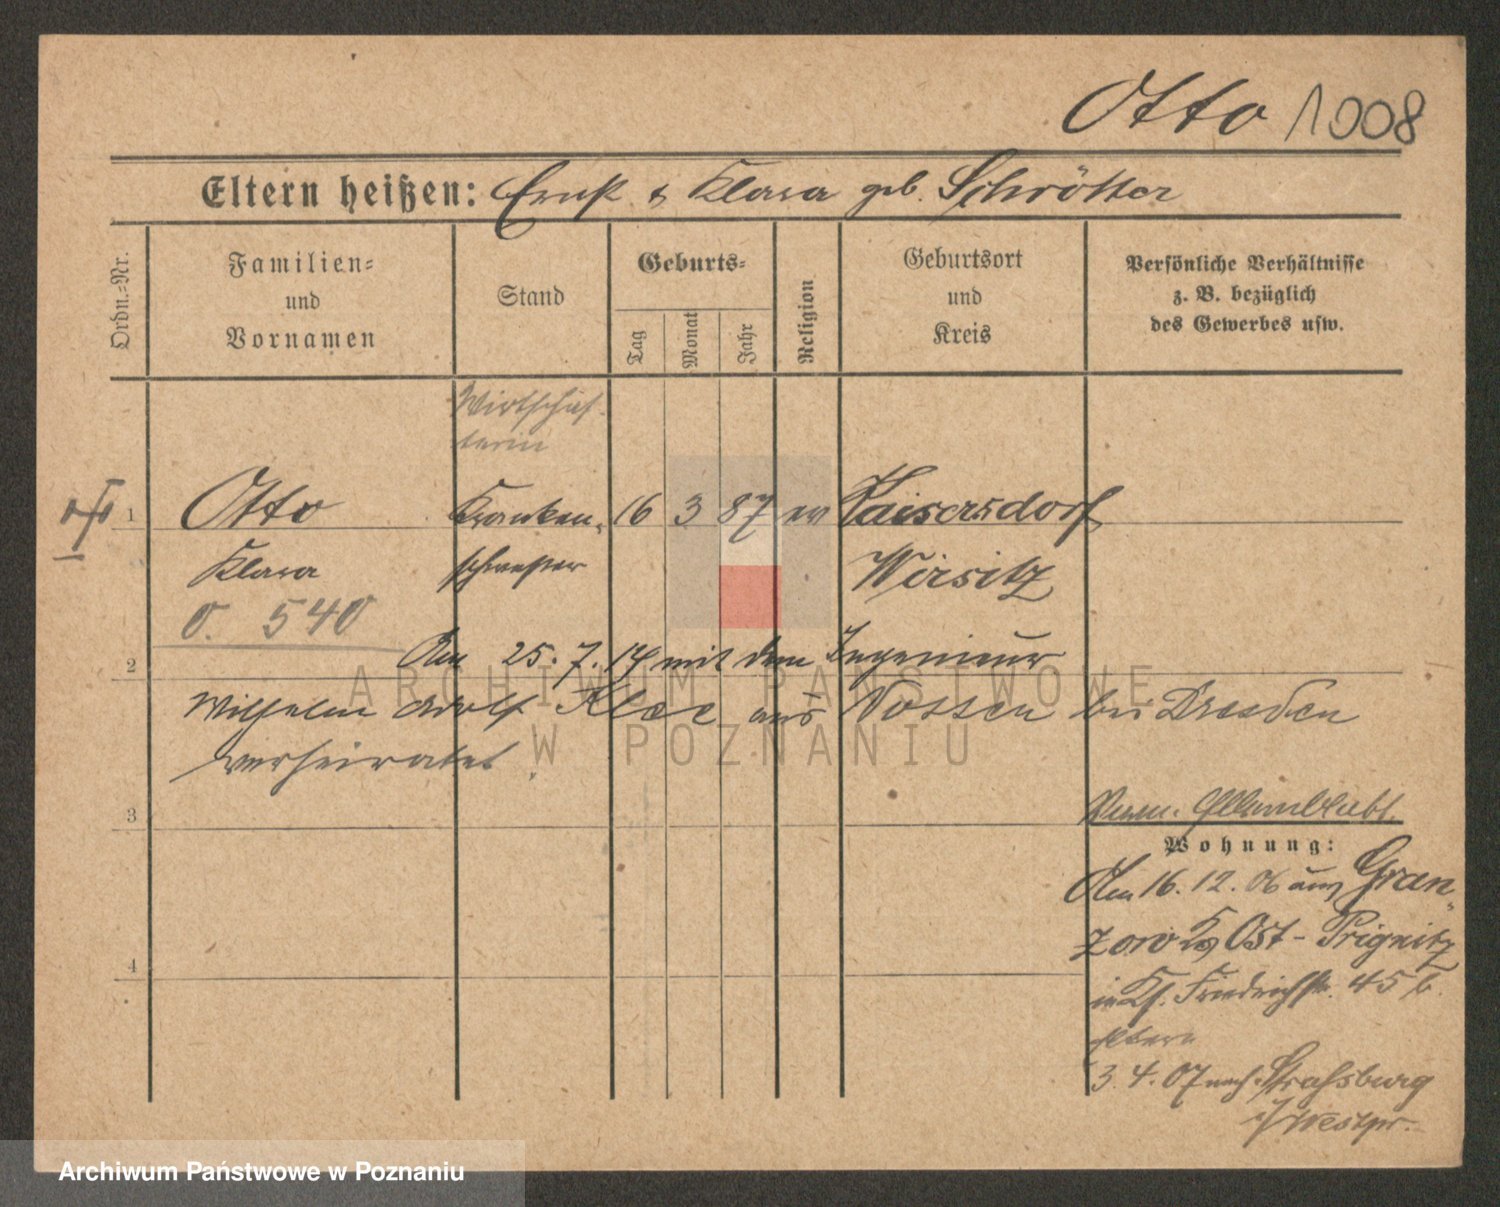 Otto 1008
Eltern heißen: Ernst & Klara geb. Schrötter
Ordn.=Nr.
Familien=
und
Vornamen
Stand
Geburts=
Tag
Monat
Jahr
Religion
Geburtsort
und
Kreis
Persönliche Verhältnisse
z. B. bezüglich
des Gewerbes usw.
Wirtschaf-
terin
1 Otto Kranken- 16 3 87 ev Kaisersdorf
Klara schwester Wirsitz
O. 540
2 Am 25. 7. 14 mit dem Ingenieur
Wilhelm Adolf Klee aus Nossen bei Dresden
verheiratet.
3
Wohnung:
Am 16. 12. 06 aus Gran-
zow Kr Ost-Prignitz
4
in Friedrichstr. 45 b.
Eltern
3. 4. 07 nach Strasburg
i/Westpr.
ARCHIWUM PAŃSTWOWE
W POZNANIU
Archiwum Państwowe w Poznaniu